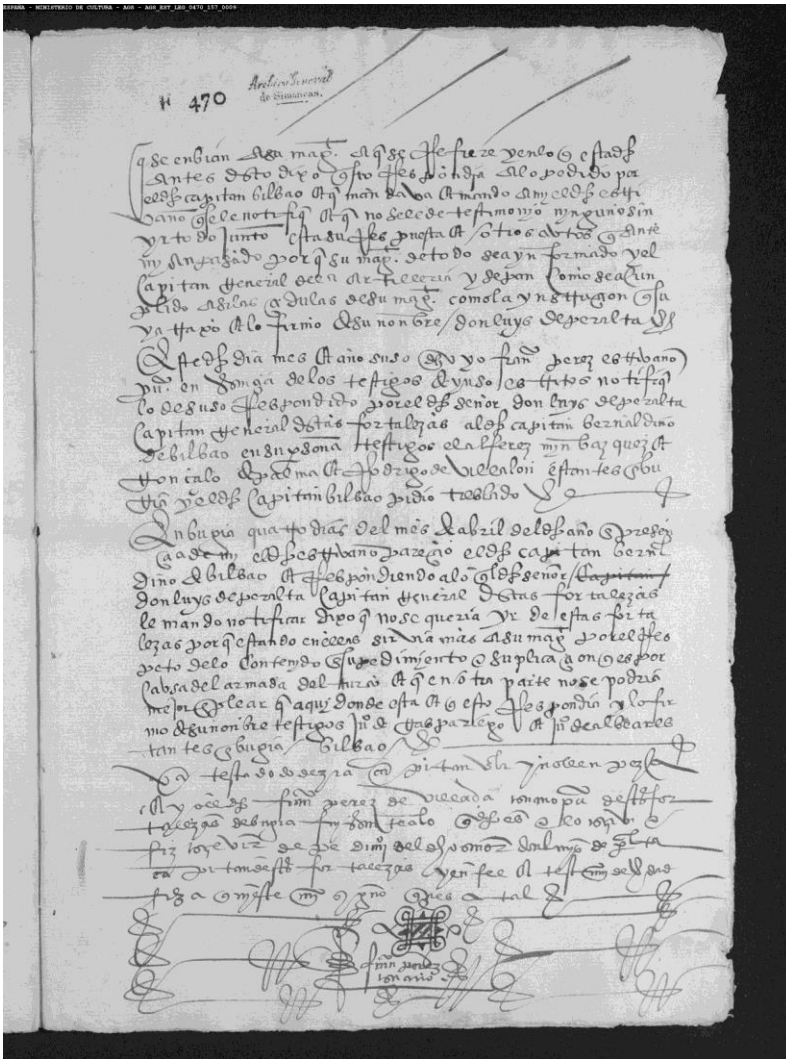 ESPAÑA - MINISTERIO DE CULTURA - AGS - AGS_EST_LEG_0470_157_0009
Archivo General
de Simancas.
470
q se enbian a su magt. a q se Refiere y en lo q estads
antes dsto dixo questo Respondia a lo pedido por
el dho capitan bilbao e q mandava e mando a my el dho escri
vano q se le notifiq e q no se le de testimonyo nynguno sin
yr todo junto esta su Respuesta e otros autos q ante
my an pasado porq su magt. de todo sea ynformado y el
Capitan general de la artilleria y sepan como se a cun
plido a dulas de su magt. como la ynstruyon
e lo firmo de su nonbre / don luys de peralta
este dho dia mes e año suso dho yo franco perez escrivano
pu. en de los testigos de yuso escritos notifiq
lo de suso Respondido por el dho señor don luys de peralta
Capitan general dstas fortalezas al dho capitan bernaldino
de bilbao en su psona testigos el alferez myn bazquez e
gonçalo de palma e Rodrigo de villalon estantes en bu
gia y el dho Capitan bilbao pidio treslado
En bugia quatro dias del mes de abril del dho año en presen
cia de my el dho escrivano pareçio el dho capitan bernal
dino de bilbao e Respondiendo a lo q el dho señor / Capitan /
don luys de peralta Capitan general dstas fortalezas
le mando notificar dixo q no se queria yr de estas forta
lezas porq estando en ellas sirvia mas a su magt por el Res
peto de lo contenydo en su pedimiento e suplicaçion q es por
Cabsa del armada del turco e q en otra parte no se podria
mejor enplear q aqui donde esta e q esto Respondio y lo fir
mo de su nonbre testigos juo de gaspariego e juo de albear es
tantes en bugia / bilbao /
va testado do dezia capitan
e yo el dho franco perez de villada pu destas for
talezas de bugia
fiz de pedimio del dho señor don luys de peralta
capitan destas fortalezas y en fee e testimo de verdad
fiz aqui este myo signo ques a tal
franco perez